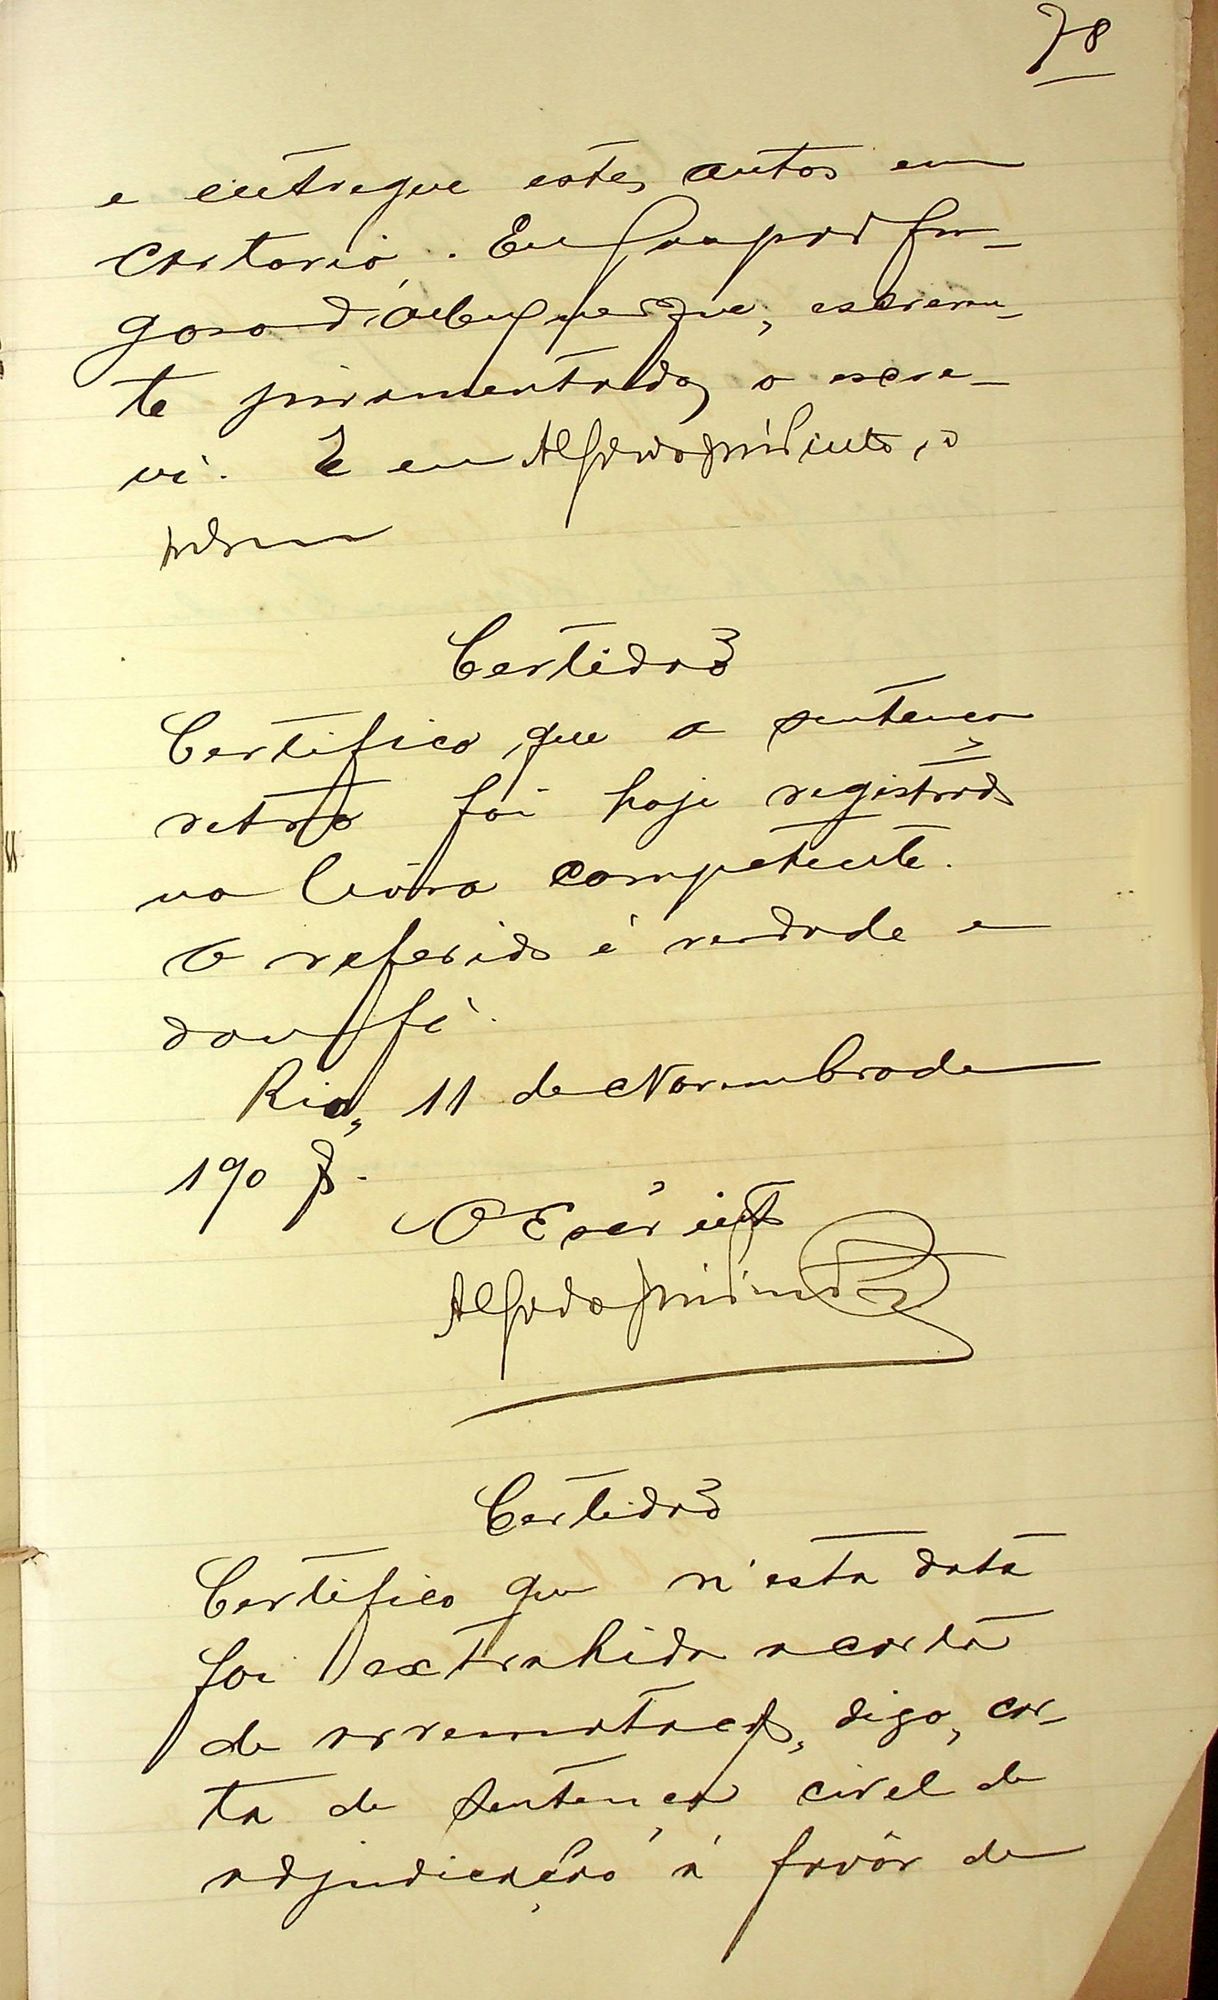 78
e entregue estes autos em
Cartorio. Eu Gaspar Fra-
goso d'Albuquerque, escreven-
te juramentado, o escre-
vi. E eu Alfredo Pinto, o
Certidão
Certifico que a sentença
retro foi hoje registrada
no livro competente.
O referido é verdade e
dou fé.
Rio, 11 de Novembro de
190
O Escr
Alfredo
Certidão
Certifico que n'esta data
foi extrahida a carta
de arrematação, digo, car-
ta de sentença civel de
adjudicação á favôr de